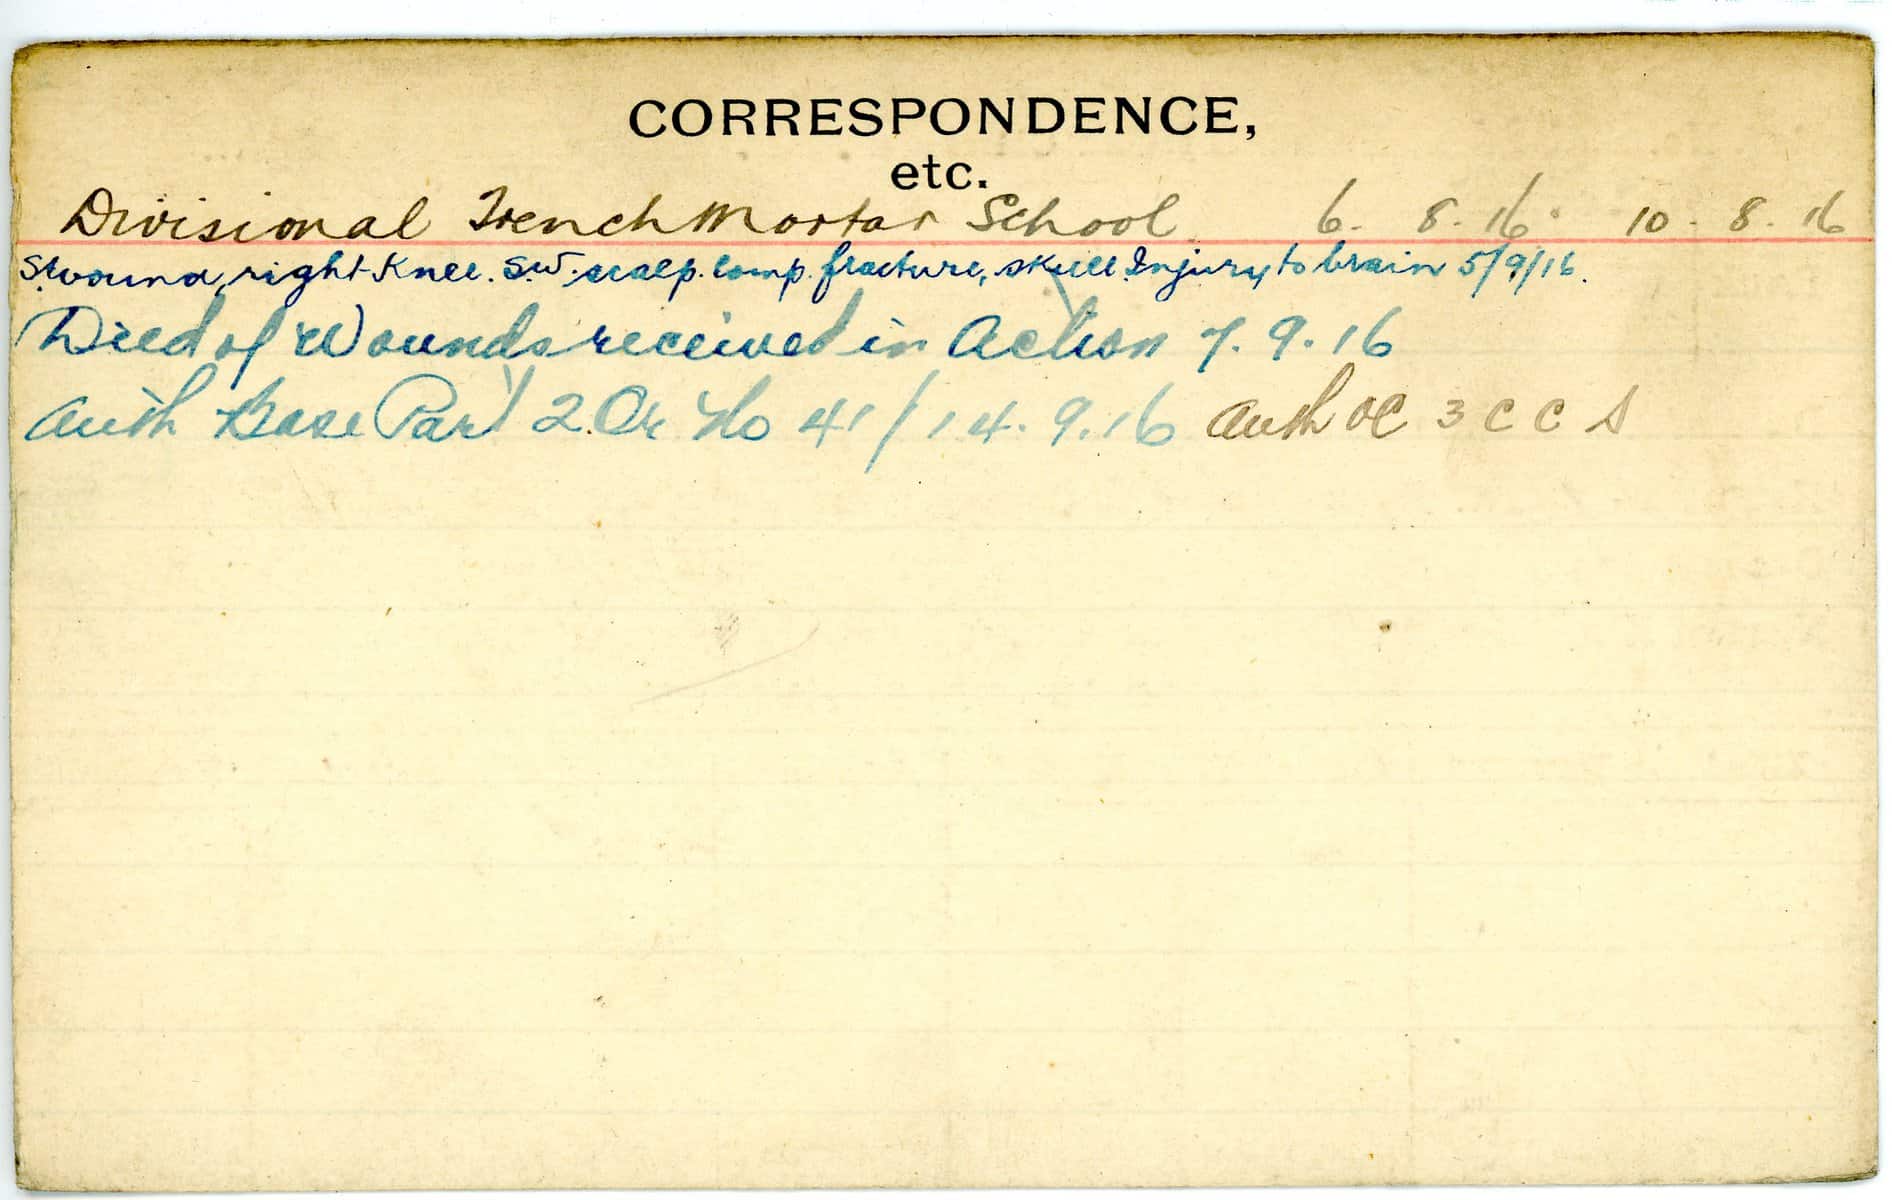 CORRESPONDENCE,
etc.
Divisional Trench Mortar School 6. 8. 16. 10. 8. 16
S. wound, right Knee. S.W. scalp. comp. fracture, skull. Injury to brain 5/9/16.
Died of Wounds received in Action 7. 9. 16
Auth Base Part 2. Or No 41/14. 9. 16 Auth OC 3 C C S